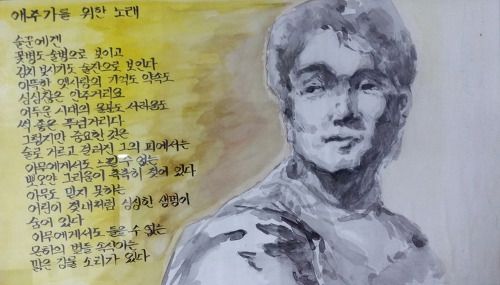 애주가를 위한 노래
술꾼에겐
꽃병도 술병으로 보이고
김치 보시기도 술잔으로 보인다
아득한 옛사랑의 기억도 약속도
심심찮은 안주거리요
어두운 시대의 울분도 서러움도
썩 좋은 푸념거리다
그렇지만 중요한 것은
술로 거르고 걸러진 그의 피에서는
아무에게서도 느낄 수 없는
뽀오얀 그리움이 촉촉히 젖어 있다
아무도 믿지 못하는
어린이 젖내처럼 싱싱한 생명이
숨어 있다
아무에게서도 들을 수 없는
은하의 별들 속삭이는
맑은 강물 소리가 있다